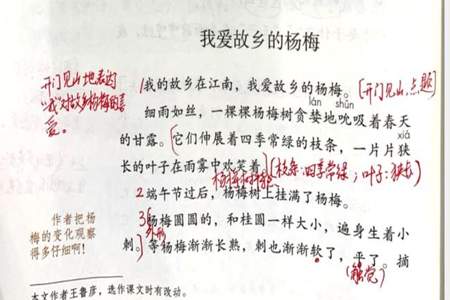 我爱故乡的杨梅
开门见山地表达
“我”对故乡杨梅的喜
爱。
1我的故乡在江南，我爱故乡的杨梅。[开门见山,点题]
lán shǔn
细雨如丝，一棵棵杨梅树贪婪地吮吸着春天
的甘露。它们伸展着四季常绿的枝条，一片片狭
xiá
长的叶子在雨雾中欢笑着。(枝条:四季常绿；叶子:狭长)
杨梅树
2端午节过后，杨梅树上挂满了杨梅。
3杨梅圆圆的，和桂圆一样大小，遍身生着小
外形
刺。等杨梅渐渐长熟，刺也渐渐软了，平了。摘
(触觉)
作者把杨
梅的变化观察
得多仔细啊！
本文作者王鲁彦，选作课文时有改动。